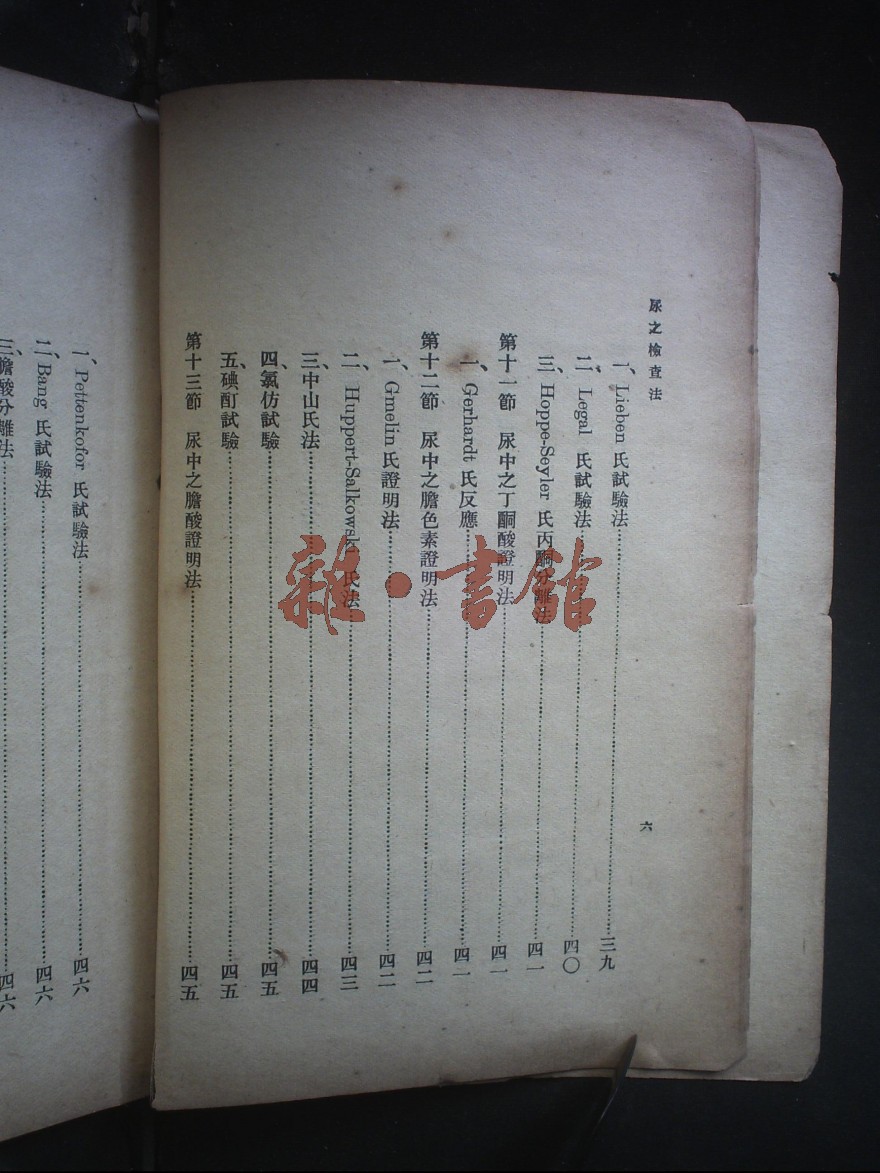 尿之檢查法
六
一、Lieben 氏試驗法……三九
二、Legal 氏試驗法……四〇
三、Hoppe-Seyler 氏丙酮分離法……四一
第十一節 尿中之丁酮酸證明法……四一
一、Gerhardt 氏反應……四一
第十二節 尿中之膽色素證明法……四二
一、Gmelin 氏證明法……四二
二、Huppert-Salkowski 氏法……四三
三、中山氏法……四四
四、氯仿試驗……四五
五、碘酊試驗……四五
第十三節 尿中之膽酸證明法……四五
一、Pettenkofor 氏試驗法……四六
二、Bang 氏試驗法……四六
三、膽酸分離法……四六
雜·書館